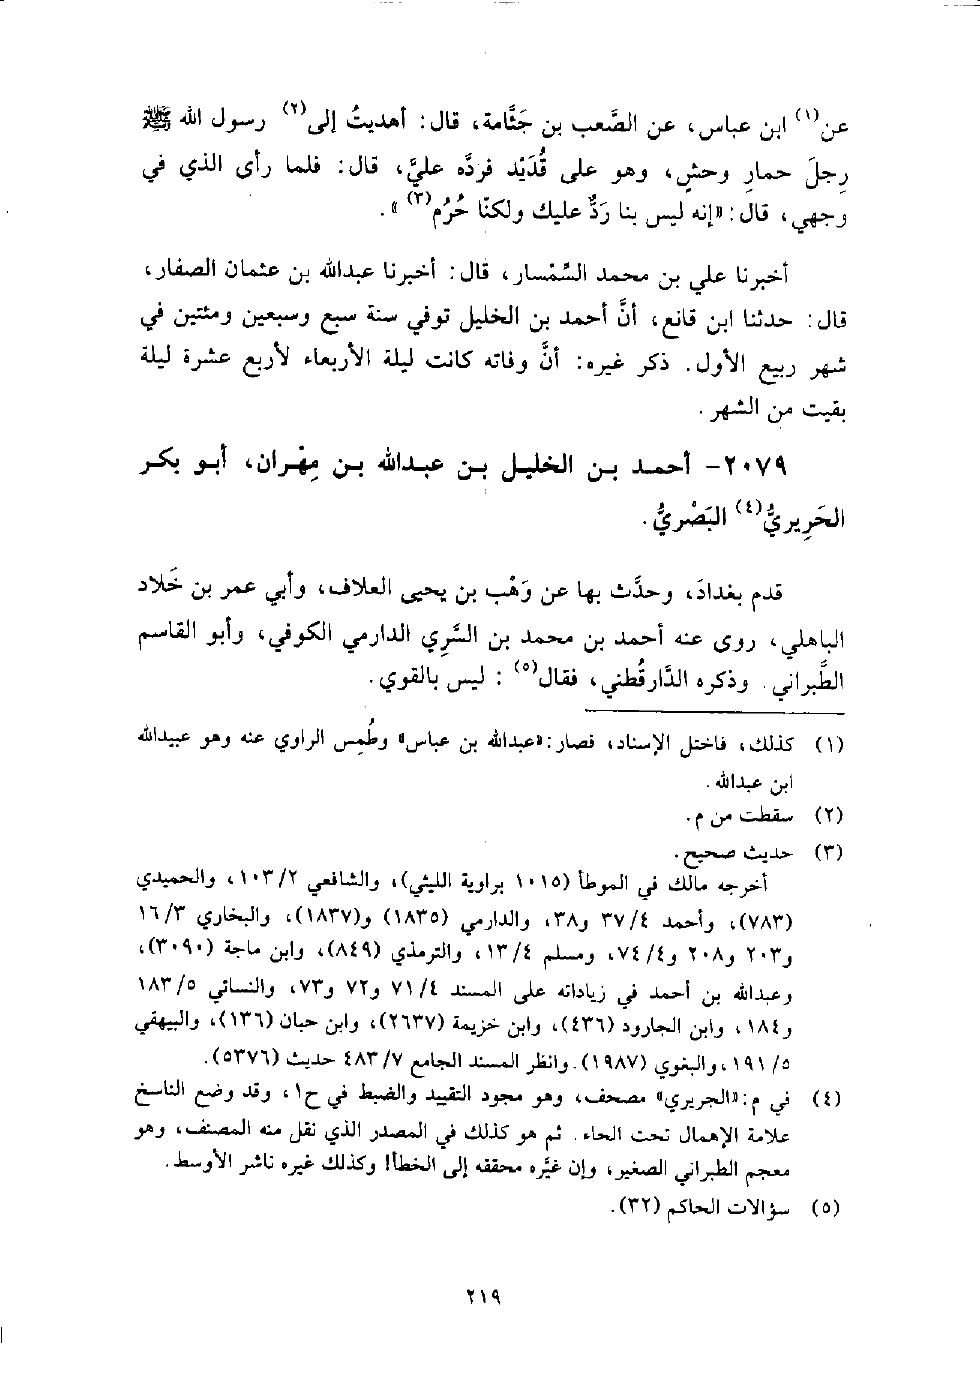 عن(١) ابن عباس، عن الصَّعب بن جَثَّامة، قال: أهديتُ إلى(٢) رسول الله ﷺ
رِجلَ حمارِ وحشٍ، وهو على قُدَيْد فردَّه عليَّ، قال: فلما رأى الذي في
وجهي، قال: «إنه ليس بنا رَدٌّ عليك ولكنّا حُرُم(٣)».
أخبرنا علي بن محمد السِّمْسار، قال: أخبرنا عبدالله بن عثمان الصفار،
قال: حدثنا ابن قانع، أنَّ أحمد بن الخليل توفي سنة سبع وسبعين ومئتين في
شهر ربيع الأول. ذكر غيره: أنَّ وفاته كانت ليلة الأربعاء لأربع عشرة ليلة
بقيت من الشهر.
٢٠٧٩- أحمد بن الخليل بن عبدالله بن مِهْران، أبو بكر
الحَرِيريُّ(٤) البَصْريُّ.
قدم بغدادَ، وحدَّث بها عن وَهْب بن يحيى العلاف، وأبي عمر بن خَلاد
الباهلي، روى عنه أحمد بن محمد بن السَّرِي الدارمي الكوفي، وأبو القاسم
الطَّبراني. وذكره الدَّارقُطني، فقال(٥): ليس بالقوي.
(١) كذلك، فاختل الإسناد، فصار: «عبدالله بن عباس» وطُمِس الراوي عنه وهو عبيدالله
ابن عبدالله.
(٢) سقطت من م.
(٣) حديث صحيح.
أخرجه مالك في الموطأ (١٠١٥ براوية الليثي)، والشافعي ١٠٣/٢، والحميدي
(٧٨٣)، وأحمد ٣٧/٤ و٣٨، والدارمي (١٨٣٥) و(١٨٣٧)، والبخاري ١٦/٣
و٢٠٣ و٢٠٨ و٧٤/٤، ومسلم ١٣/٤، والترمذي (٨٤٩)، وابن ماجة (٣٠٩٠)،
وعبدالله بن أحمد في زياداته على المسند ٧١/٤ و٧٢ و٧٣، والنسائي ١٨٣/٥
و١٨٤، وابن الجارود (٤٣٦)، وابن خزيمة (٢٦٣٧)، وابن حبان (١٣٦)، والبيهقي
١٩١/٥، والبغوي (١٩٨٧). وانظر المسند الجامع ٤٨٣/٧ حديث (٥٣٧٦).
(٤) في م: «الجريري» مصحف، وهو مجود التقييد والضبط في ح١، وقد وضع الناسخ
علامة الإهمال تحت الحاء. ثم هو كذلك في المصدر الذي نقل منه المصنف، وهو
معجم الطبراني الصغير، وإن غيَّره محققه إلى الخطأ! وكذلك غيره ناشر الأوسط.
(٥) سؤالات الحاكم (٣٢).
٢١٩